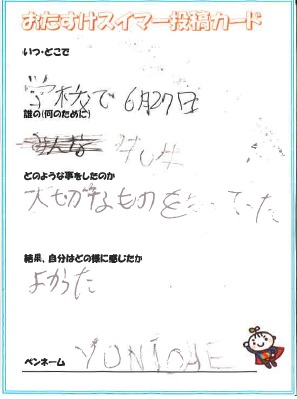 おたすけスイマー投稿カード
いつ・どこで
学校で 6月27日
誰の(何のために)
みんな
どのような事をしたのか
大切なものをとってった
結果、自分はどの様に感じたか
よかった
ペンネーム